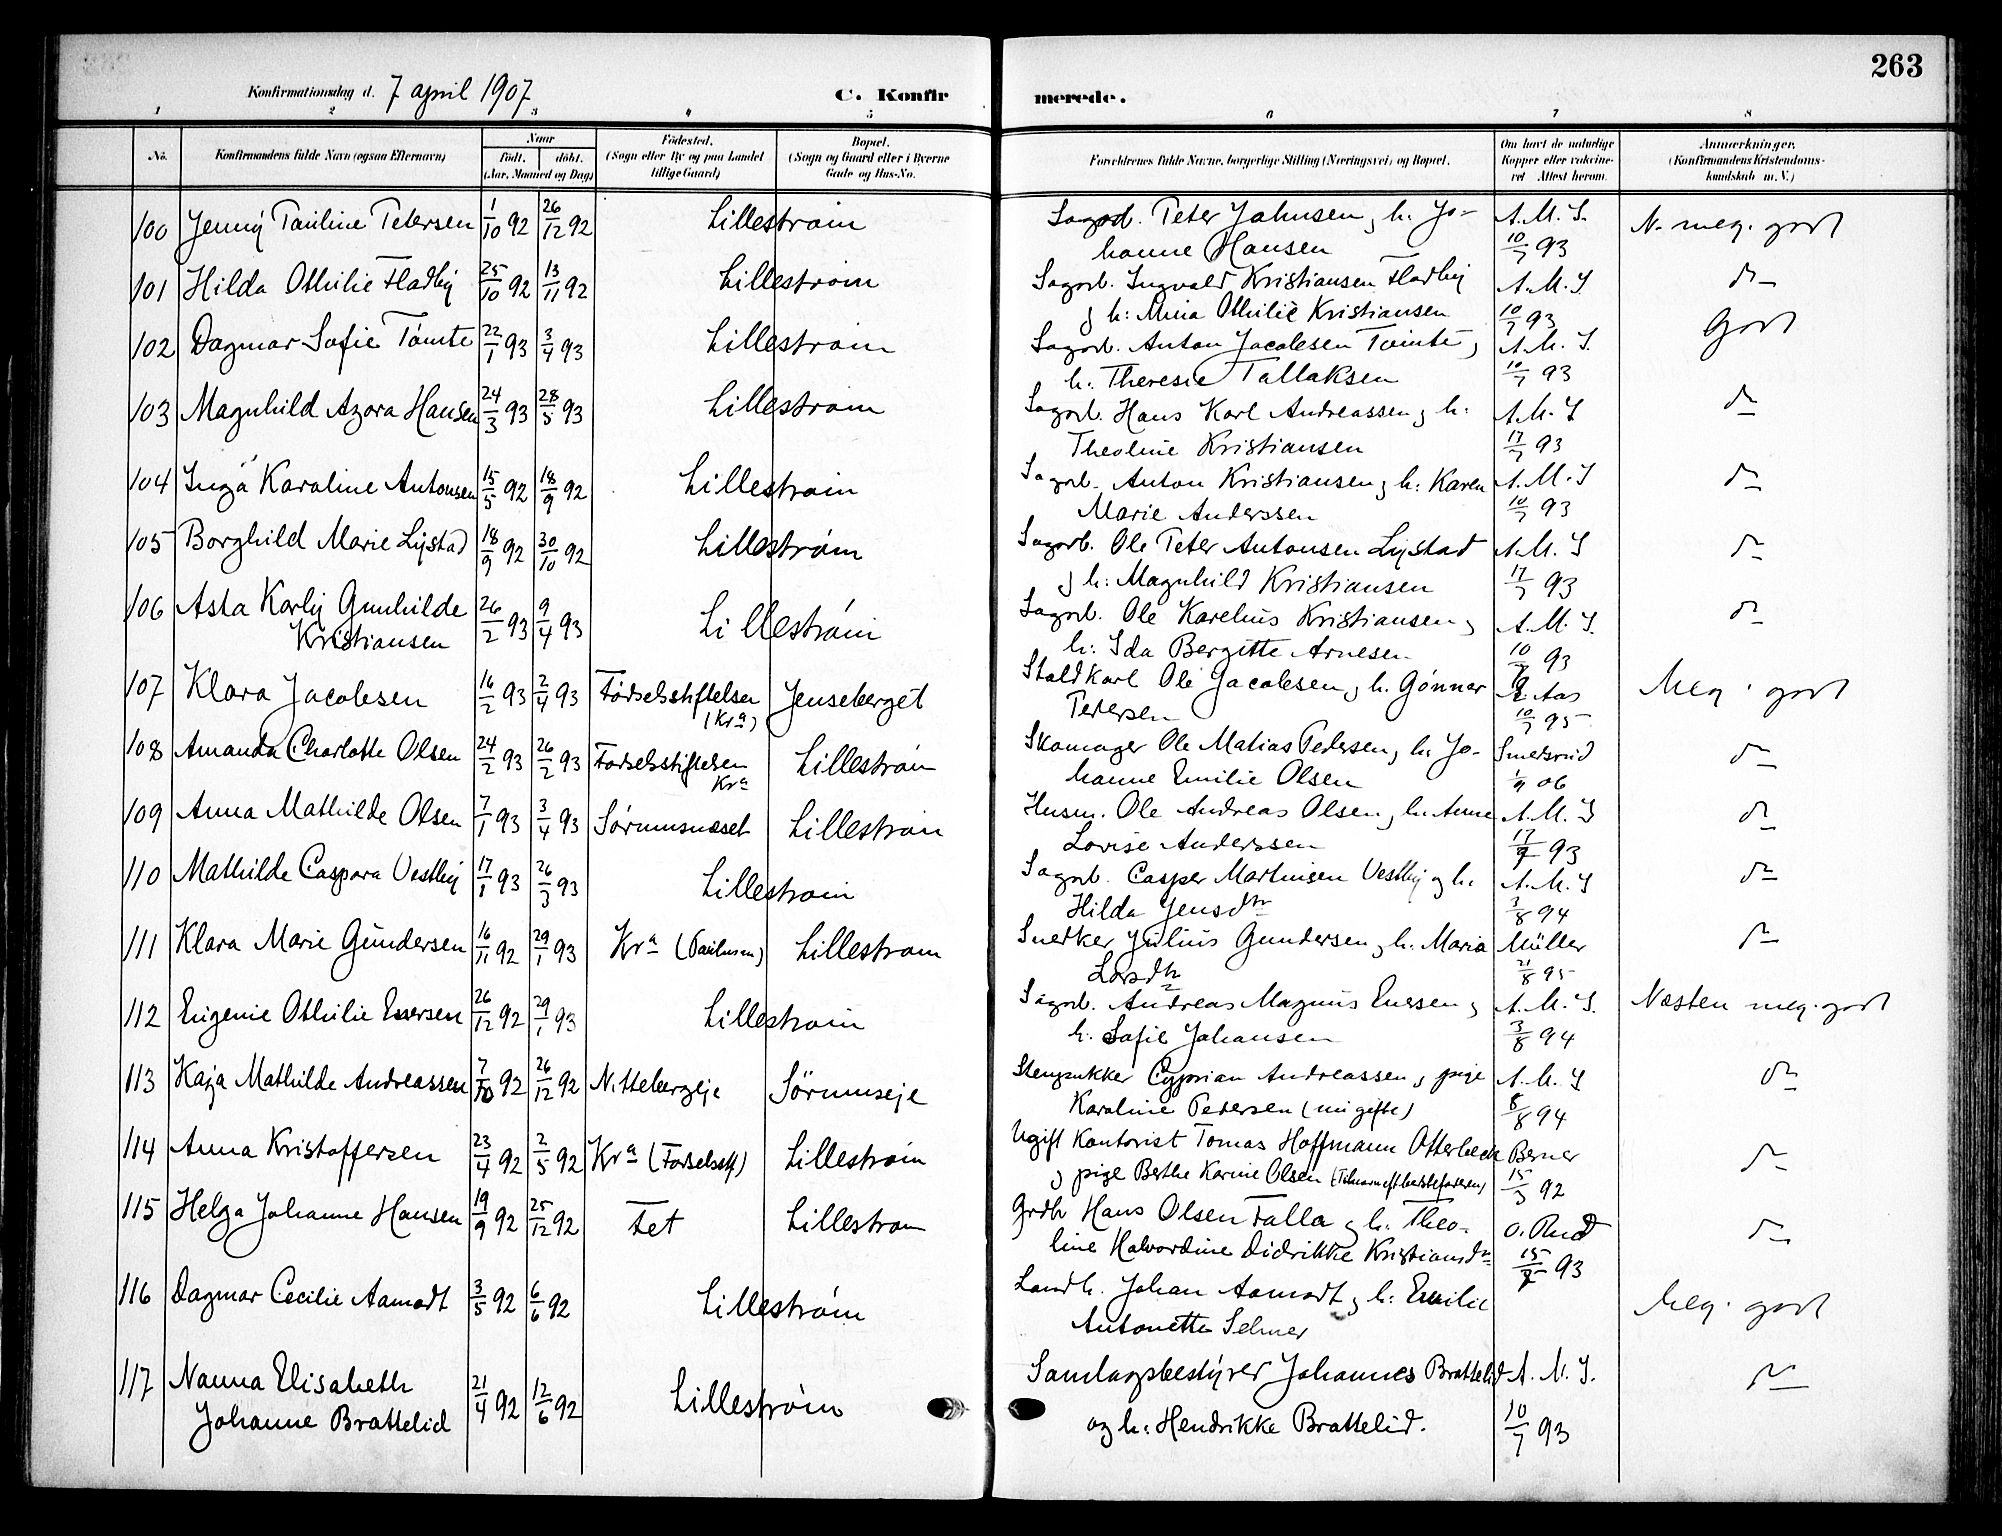 263
Konfirmationsdag d. 7 april 1907
C. Konfirmerede.
1 2 3 4 5 6 7 8
No. Konfirmandens fulde Navn (ogsaa Efternavn) Naar født. døbt. (Aar, Maaned og Dag) Fødested. (Sogn eller By og paa Landet tillige Gaard) Bopæl. (Sogn og Gaard eller i Byerne Gade og Hus-No. Forældrenes fulde Navne, borgerlige Stilling (Næringsvei) og Bopæl. Om havt de naturlige Kopper eller vakcineret Attest herom. Anmerkninger. (Konfirmandens Kristendomskundskab m. V.)
100 Jenny Pauline Petersen 1/10 92 26/12 92 Lillestrøm Sagarb. Peter Johnsen, h. Jo- A. M. S. N. meg. godt
hanne Hansen 10/7 93
101 Hilda Othilie Fladby 25/10 92 13/11 92 Lillestrøm Sagarb. Ingvald Kristiansen Fladby A. M. S do
og h: Mina Othilie Kristiansen 10/7 93
102 Dagmar Sofie Tømte 22/1 93 3/4 93 Lillestrøm Sagarb. Anton Jacobsen Tømte og A. M. S. Godt
h: Therese Tallaksen 10/7 93
103 Magnhild Azora Hansen 24/3 93 28/5 93 Lillestrøm Sagarb. Hans Karl Andreassen og h: A. M. S do
Theoline Kristiansen 17/7 93
104 Inga Karoline Antonsen 15/5 92 18/9 92 Lillestrøm Sagarb. Anton Kristiansen og h: Karen A. M. S do
Marie Anderssen 10/7 93
105 Borghild Marie Lystad 18/9 92 30/10 92 Lillestrøm Sagarb. Ole Peter Antonsen Lystad A. M. S do
og h: Magnhild Kristiansen 17/7 93
106 Asta Karly Gunhilde 26/2 93 9/4 93 Lillestrøm Sagarb. Ole Karelius Kristiansen og A. M. S. do
Kristiansen h: Ida Bergitte Arnesen 10/7 93
107 Klara Jacobsen 16/2 93 2/4 93 Fødselsstiftelsen (Kra) Jenseberget Staldkarl Ole Jacobsen og h. Gønner Aas Meg. godt
Pedersen 10/7 95
108 Amanda Charlotte Olsen 24/2 93 26/2 93 Fødselsstiftelsen Kra Lillestrøm Skomager Ole Matias Pedersen og h. Jo- Smedsrud do
hanne Emilie Olsen 06
109 Anna Mathilde Olsen 7/1 93 3/4 93 Sørumsnæset Lillestrøm Husm. Ole Andreas Olsen og h. Anne A. M. S do
Lovise Anderssen 17/7 93
110 Mathilde Caspara Vestby 17/1 93 26/3 93 Lillestrøm Sagarb. Casper Martinsen Vestby og h. A. M. S do
Hilda Jensdtr 3/8 94
111 Klara Marie Gundersen 16/11 92 29/1 93 Kra (Paulusm) Lillestrøm Snedker Julius Gundersen og h. Maria Müller do
Larsdtr 21/8 95
112 Eugenie Othilie Enersen 26/12 92 29/1 93 Lillestrøm Sagarb. Andreas Magnus Enersen og A. M. S. Næsten meg. godt
h. Sofie Johansen 3/8 94
113 Kaja Mathilde Andreassen 7/10 92 26/12 92 Nittebergeje Sørumseje Stenpukker Cyprian Andreassen og pige A. M. S do
Karoline Pedersen (nu gifte) 8/8 94
114 Anna Kristoffersen 23/4 92 2/5 92 Kra (Fødselsst) Lillestrøm Ugift Kontorist Tomas Hoffmann Otterbeck Berner do
og pige Berthe Karine Olsen 15/3 92
115 Helga Johanne Hansen 19/9 92 25/12 92 Fet Lillestrøm Grdbr Hans Olsen Falla og h. Theo- O. Rud do
line Halvordine Didrikke Kristiansdtr 93
116 Dagmar Cecilie Aamodt 3/5 92 6/6 92 Lillestrøm Landh. Johan Aamodt og h: Emilie Meg. godt
Antonette Selmer
117 Nanna Elisabeth 21/4 92 12/6 92 Lillestrøm Samlagsbestyrer Johannes Brattelid A. M. S. do
Johanne Brattelid og h: Hendrikke Brattelid. 10/7 93